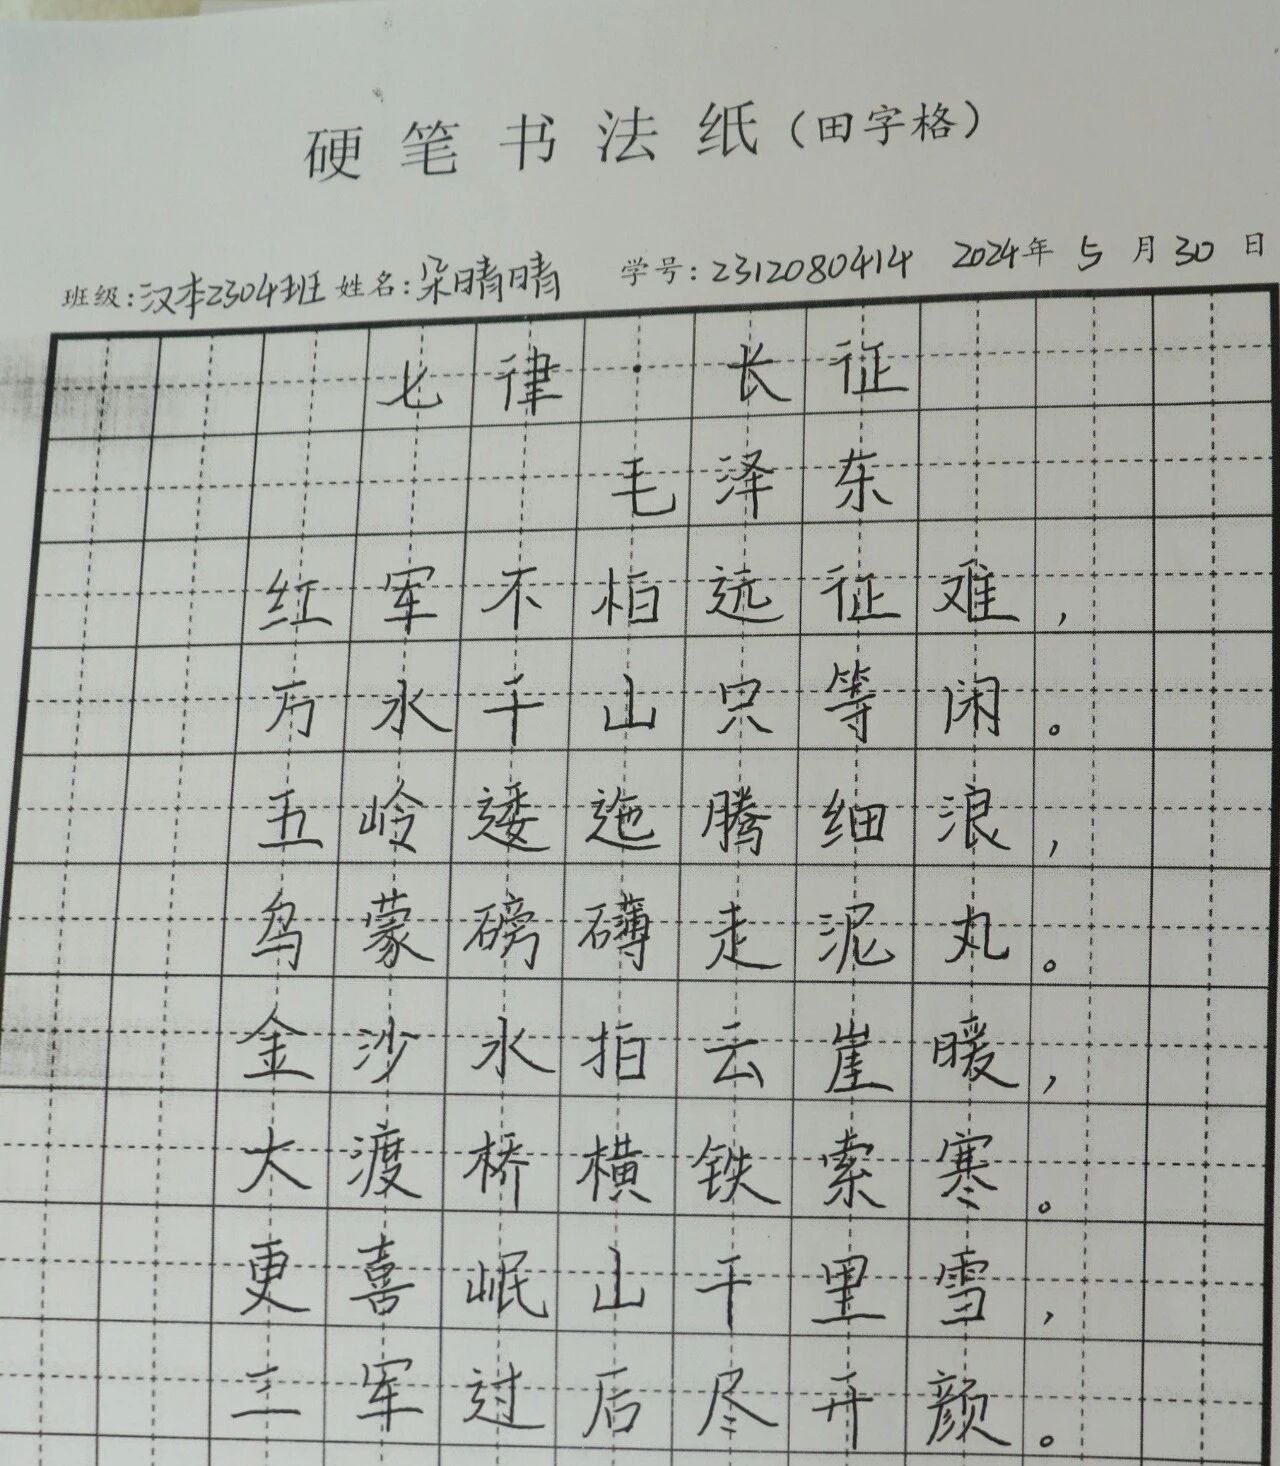 硬笔书法纸（田字格）
班级:汉本2304班 姓名:朵晴晴 学号:2312080414 2024年 5 月 30 日
七律·长征
毛泽东
红军不怕远征难，
万水千山只等闲。
五岭逶迤腾细浪，
乌蒙磅礴走泥丸。
金沙水拍云崖暖，
大渡桥横铁索寒。
更喜岷山千里雪，
三军过后尽开颜。